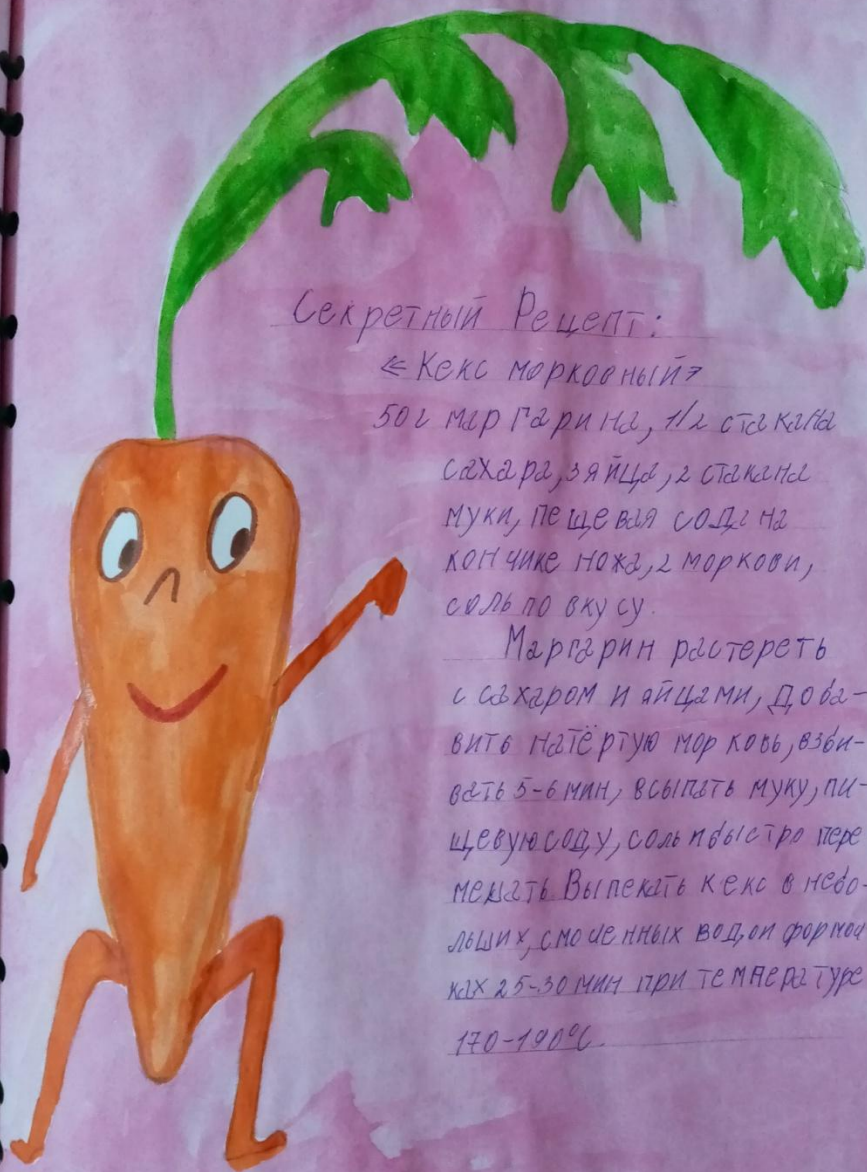 Секретный Рецепт:
«Кекс морковный»
50г маргарина, 1/2 стакана
сахара, 3 яйца, 2 стакана
муки, пещевая сода на
кончике ножа, 2 моркови,
соль по вкусу.
Маргарин растереть
с сахаром и яйцами, доба-
вить натёртую морковь, взби-
вать 5-6 мин, всыпать муку, пи-
щевую соду, соль и быстро пере
мешать Выпекать кекс в небо-
льших, смоченных водой формоч
ках 25-30 мин при температуре
170-190°С.